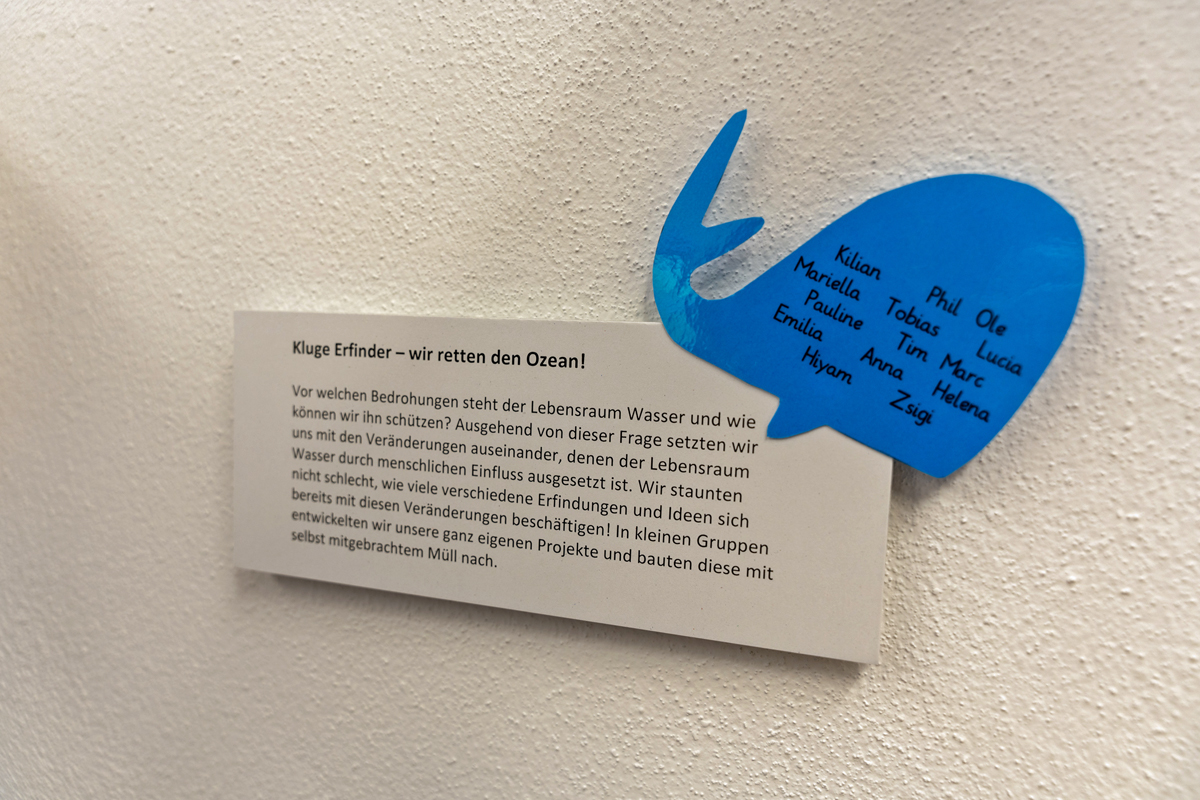 Kluge Erfinder – wir retten den Ozean!
Vor welchen Bedrohungen steht der Lebensraum Wasser und wie
können wir ihn schützen? Ausgehend von dieser Frage setzten wir
uns mit den Veränderungen auseinander, denen der Lebensraum
Wasser durch menschlichen Einfluss ausgesetzt ist. Wir staunten
nicht schlecht, wie viele verschiedene Erfindungen und Ideen sich
bereits mit diesen Veränderungen beschäftigen! In kleinen Gruppen
entwickelten wir unsere ganz eigenen Projekte und bauten diese mit
selbst mitgebrachtem Müll nach.
Kilian Phil Ole
Mariella Tobias Lucia
Pauline Tim Marc
Emilia Anna Helena
Hiyam Zsigi